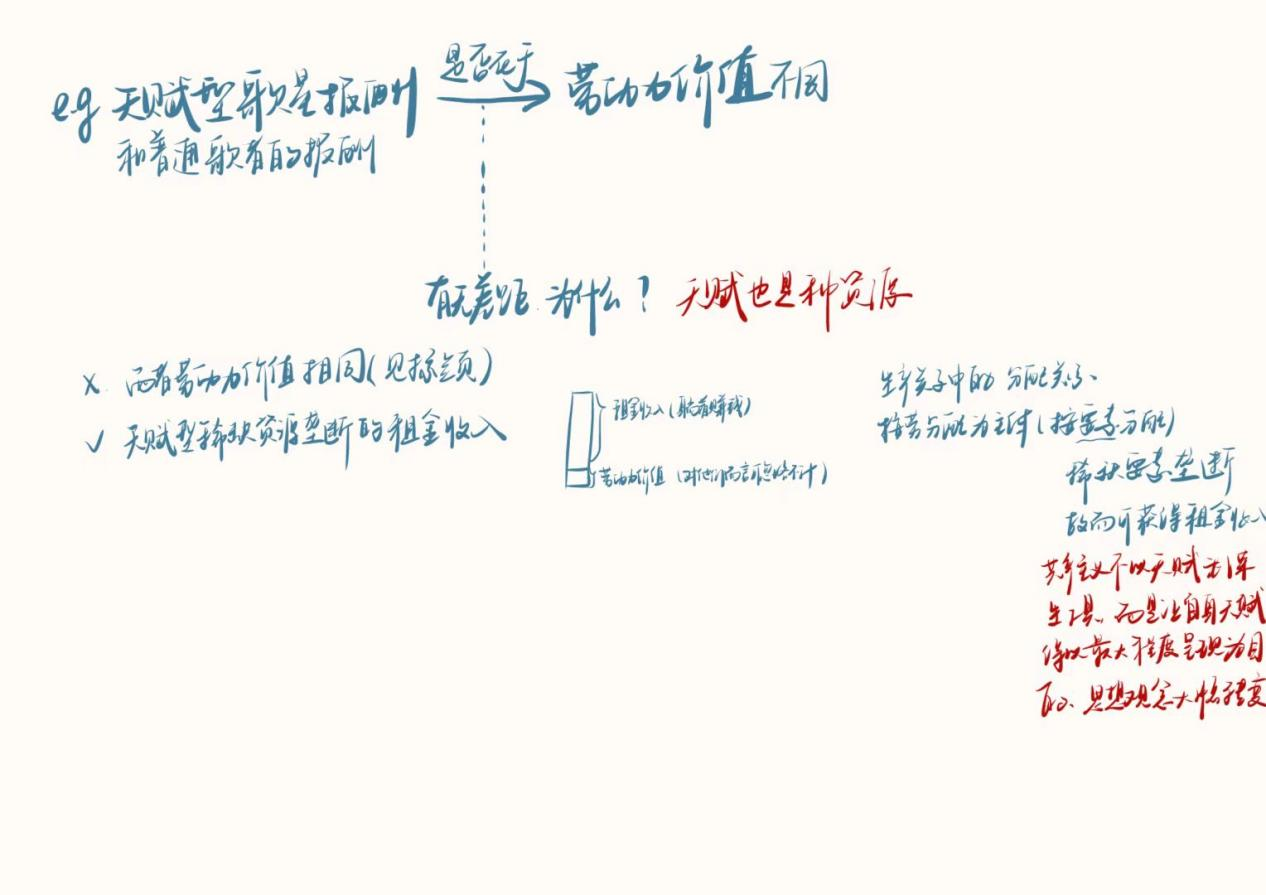 e.g 天赋型歌星报酬 是否在于 劳动力价值不同
和普通歌者的报酬
有无差距 为什么? 天赋也是种资源
x. 两者劳动力价值相同(见标红页)
✓ 天赋型稀缺资源垄断的租金收入
租金收入(躺着赚钱)
劳动力价值(对他们而言忽略不计)
生产关系中的 分配关系、
按劳分配为主体(按要素分配)
稀缺要素垄断
故而可获得租金收入
共产主义不以天赋为谋
生工具、而是让自身天赋
得以最大程度呈现为目
的、思想观念大幅转变